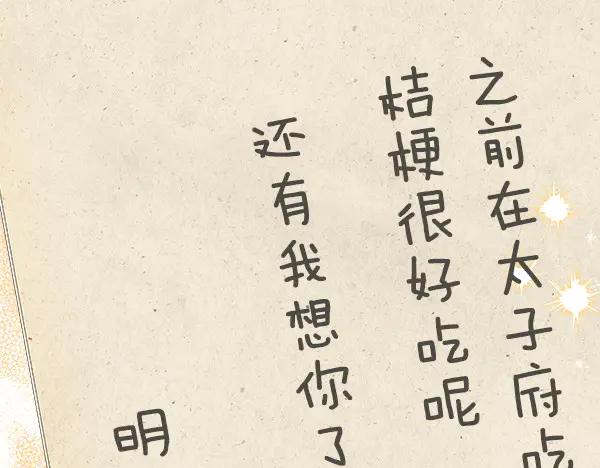 之前在太子府吃
桔梗很好吃呢
还有我想你了
明